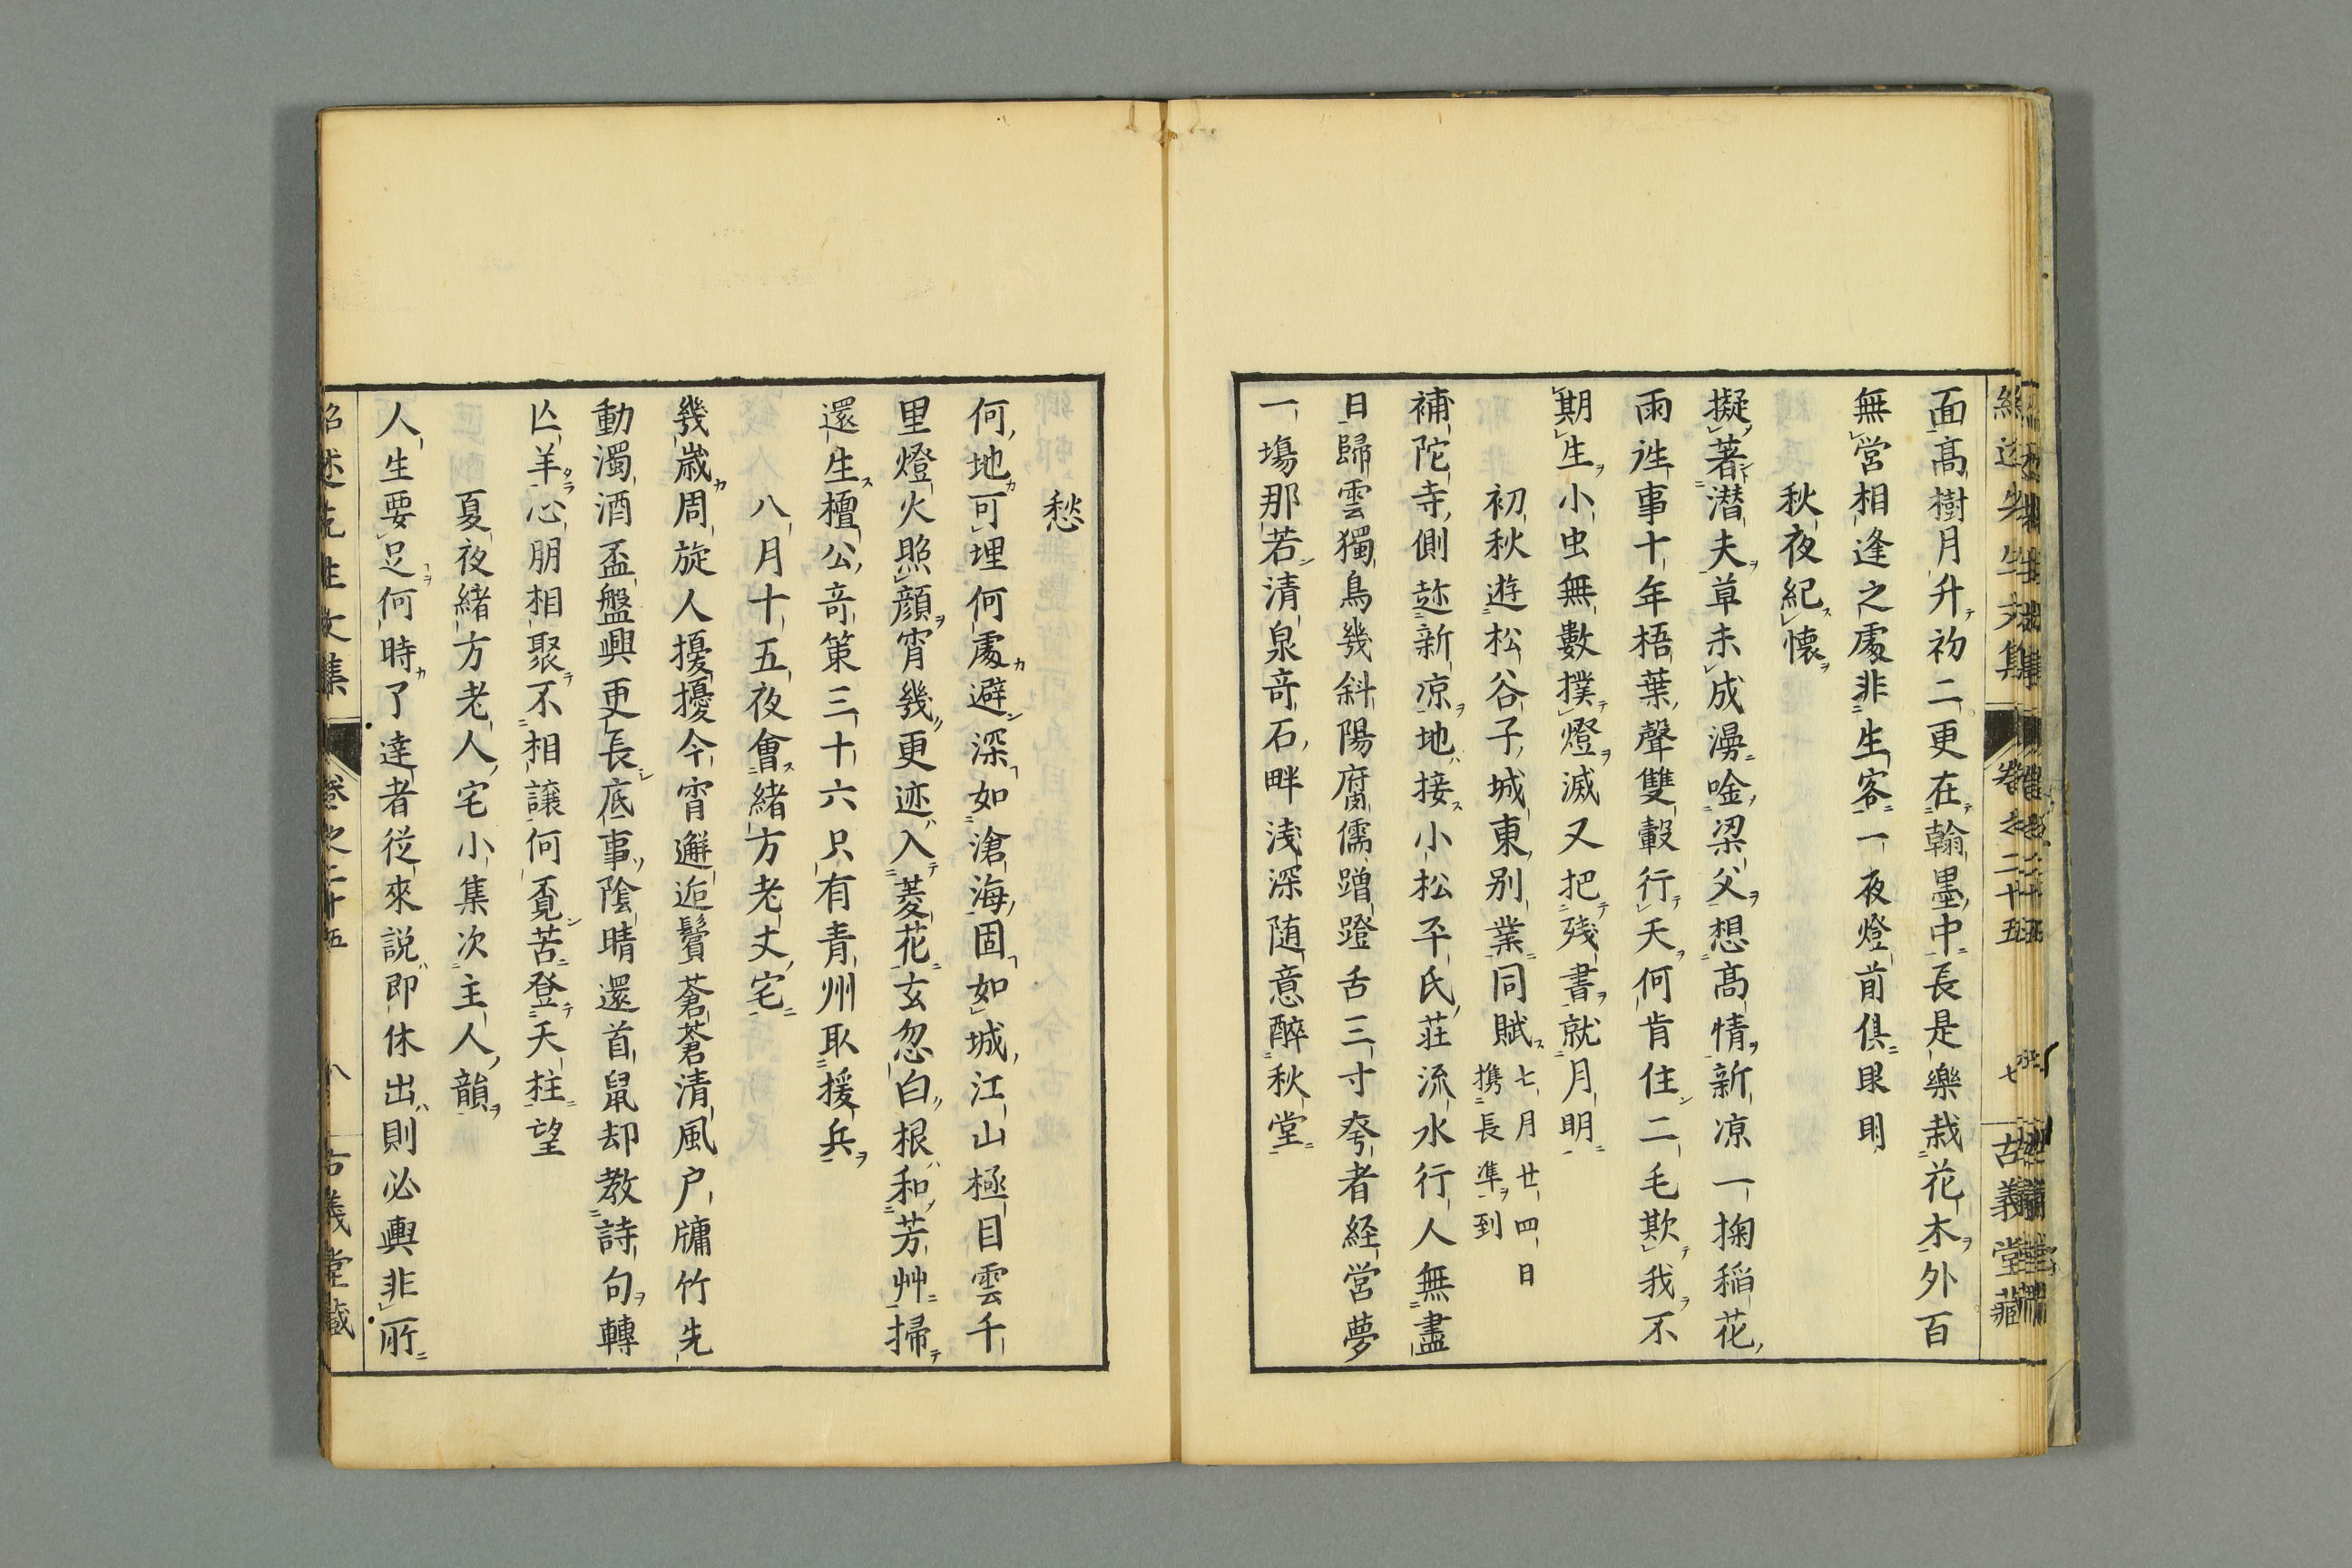 面高樹月升初二更在翰墨中長是樂栽花木外百
無営相逢之處非生客一夜燈前俱眼明
秋夜紀懷
擬著潜夫草未成漫唫梁父想高情新凉一掬稲花
雨徃事十年梧葉聲雙轂行天何肯住二毛欺我不
期生小虫無數撲燈滅又把残書就月明
初秋遊松谷子城東别業同賦
七月廿四日
携長準到
補陀寺側趂新凉地接小松平氏荘流水行人無盡
日歸雲獨鳥幾斜陽腐儒蹭蹬舌三寸夸者経営夢
一塲那若清泉竒石畔浅深随意醉秋堂
愁
何地可埋何處避深如滄海固如城江山極目雲千
里燈火照顔宵幾更迹入菱花玄忽白根和芳艸掃
還生檀公竒策三十六只有青州取援兵
八月十五夜會緒方老丈宅
幾歳周旋人擾擾今宵邂逅鬢蒼蒼清風户牗竹先
動濁酒盃盤興更長底事陰晴還首鼠却教詩句轉
亾羊心朋相聚不相讓何覔苦登天柱望
夏夜緒方老人宅小集次主人韻
人生要足何時了達者従來説即休出則必輿非所
紹述先生文集
卷之二十五
七
古義堂藏
紹述先生文集
卷之二十五
八
古義堂藏